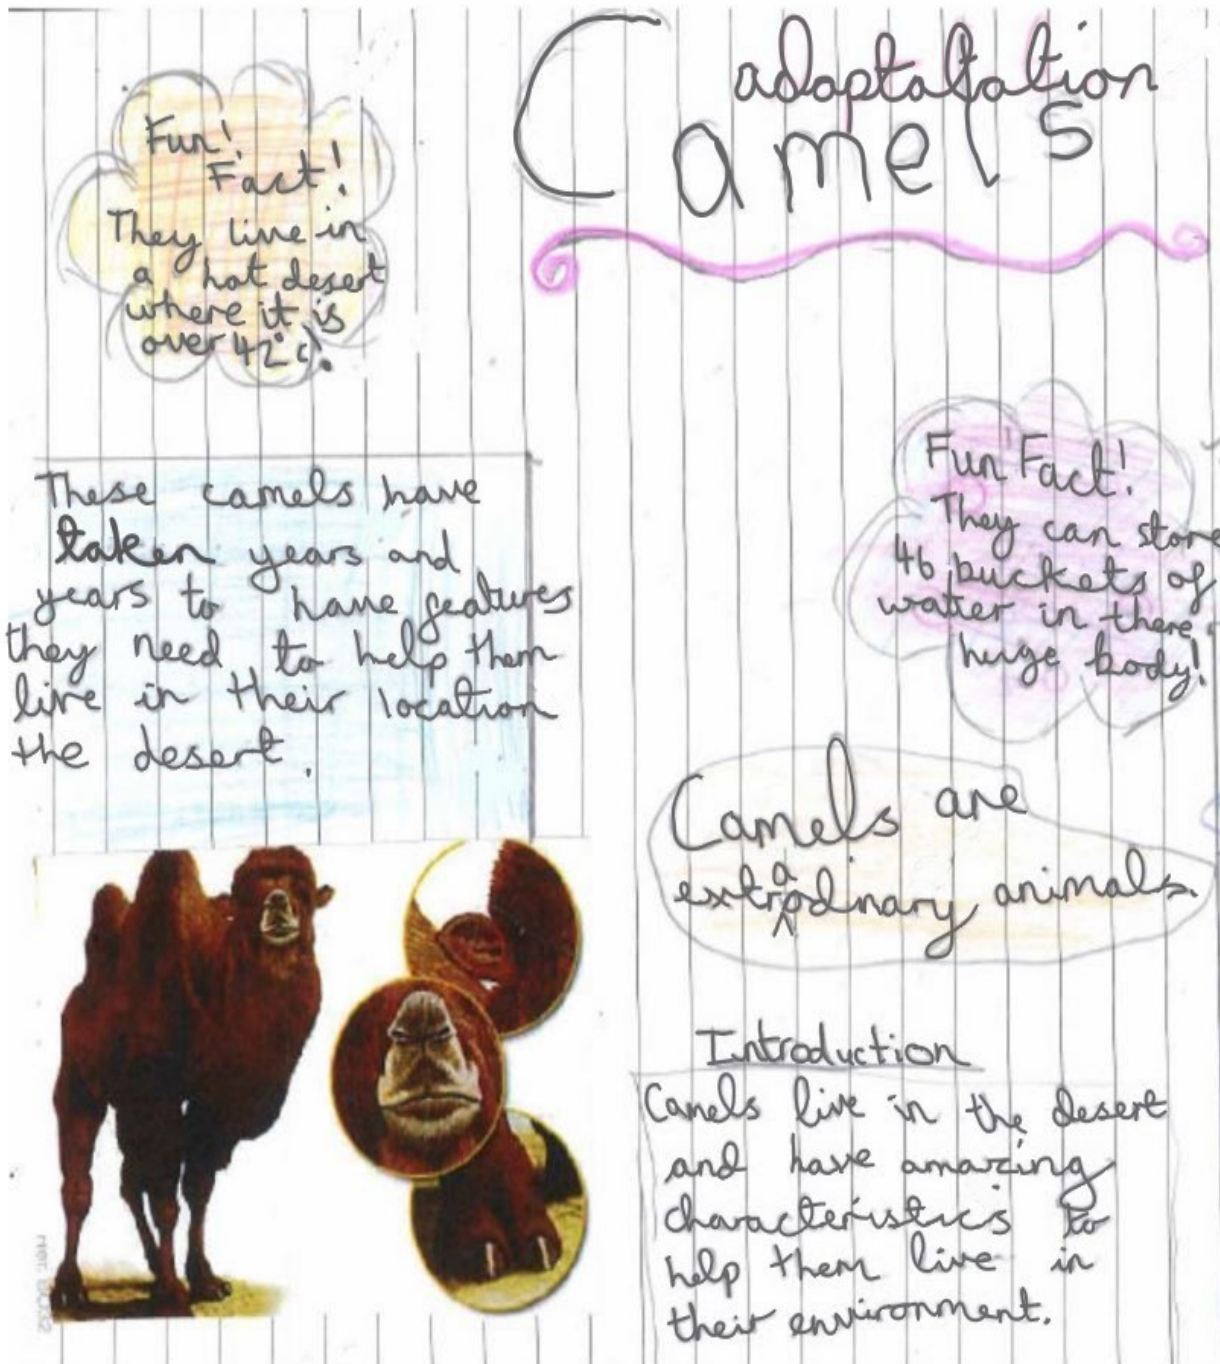 Camels
adaptatation
Fun!
Fact!
They live in
a hot desert
where it is
over 42°c!
These camels have
taken years and
years to have features
they need to help them
live in their location
the desert.
Fun Fact!
They can store
46 buckets of
water in there
huge body!
Camels are
extraodinary animals.
Introduction
Camels live in the desert
and have amazing
characteristics to
help them live in
their environment.